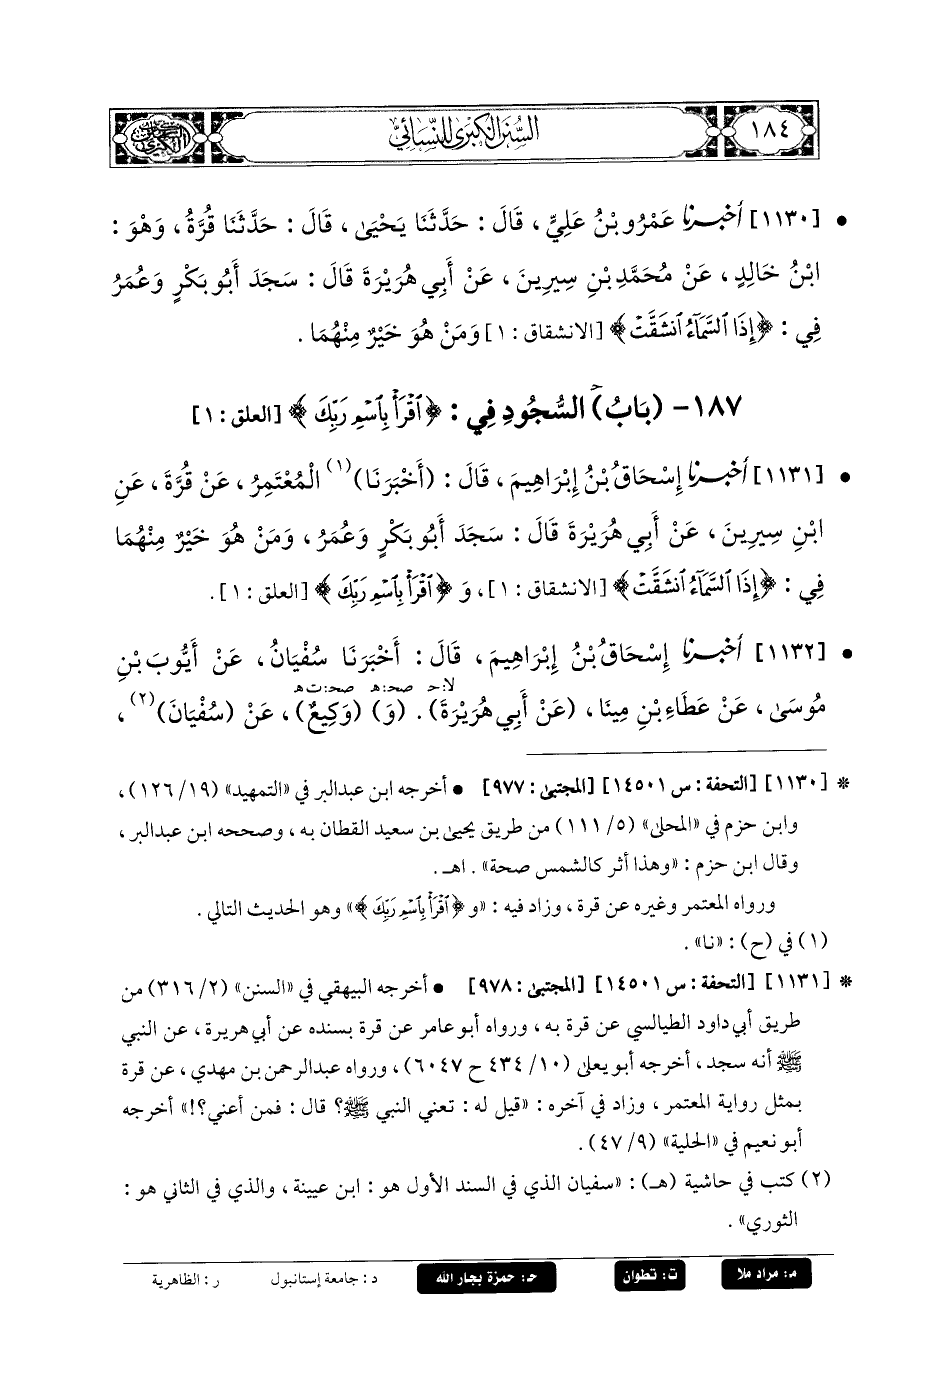 ١٨٤
السُّنَنُ الكُبْرَىٰ لِلنَّسَائِيِّ
• [١١٣٠] أَخْبَرَنَا عَمْرُو بْنُ عَلِيٍّ ، قَالَ : حَدَّثَنَا يَحْيَىٰ ، قَالَ : حَدَّثَنَا قُرَّةُ ، وَهْوَ :
ابْنُ خَالِدٍ ، عَنْ مُحَمَّدِ بْنِ سِيرِينَ ، عَنْ أَبِي هُرَيْرَةَ قَالَ : سَجَدَ أَبُو بَكْرٍ وَعُمَرُ
فِي : ﴿إِذَا ٱلسَّمَآءُ ٱنشَقَّتْ﴾ [الانشقاق : ١] وَمَنْ هُوَ خَيْرٌ مِنْهُمَا .
١٨٧- (بَابُ) السُّجُودِ فِي : ﴿ ٱقْرَأْ بِٱسْمِ رَبِّكَ ﴾ [العلق : ١]
ح
• [١١٣١] أَخْبَرَنَا إِسْحَاقُ بْنُ إِبْرَاهِيمَ ، قَالَ : (أَخْبَرَنَا)(١) الْمُعْتَمِرُ ، عَنْ قُرَّةَ ، عَنِ
ابْنِ سِيرِينَ ، عَنْ أَبِي هُرَيْرَةَ قَالَ : سَجَدَ أَبُو بَكْرٍ وَعُمَرُ ، وَمَنْ هُوَ خَيْرٌ مِنْهُمَا
فِي : ﴿إِذَا ٱلسَّمَآءُ ٱنشَقَّتْ﴾ [الانشقاق : ١] ، وَ ﴿ ٱقْرَأْ بِٱسْمِ رَبِّكَ ﴾ [العلق : ١] .
• [١١٣٢] أَخْبَرَنَا إِسْحَاقُ بْنُ إِبْرَاهِيمَ ، قَالَ : أَخْبَرَنَا سُفْيَانُ ، عَنْ أَيُّوبَ بْنِ
لا:حـ صحـ:هـ صحـ:ت هـ
مُوسَىٰ ، عَنْ عَطَاءِ بْنِ مِينَا ، (عَنْ أَبِي هُرَيْرَةَ) . (وَ) (وَكِيعٌ) ، عَنْ (سُفْيَانَ)(٢) ،
* [١١٣٠] [التحفة : س ١٤٥٠١] [المجتبى : ٩٧٧] • أخرجه ابن عبدالبر في «التمهيد» (١٩/ ١٢٦) ،
وابن حزم في «المحلى» (٥/ ١١١) من طريق يحيى بن سعيد القطان به ، وصححه ابن عبدالبر ،
وقال ابن حزم : «وهذا أثر كالشمس صحة» . اهـ .
ورواه المعتمر وغيره عن قرة ، وزاد فيه : «و ﴿ ٱقْرَأْ بِٱسْمِ رَبِّكَ ﴾» وهو الحديث التالي .
(١) في (ح) : «نا» .
* [١١٣١] [التحفة : س ١٤٥٠١] [المجتبى : ٩٧٨] • أخرجه البيهقي في «السنن» (٢/ ٣١٦) من
طريق أبي داود الطيالسي عن قرة به ، ورواه أبو عامر عن قرة بسنده عن أبي هريرة ، عن النبي
ﷺ أنه سجد ، أخرجه أبو يعلى (١٠/ ٤٣٤ ح ٦٠٤٧) ، ورواه عبدالرحمن بن مهدي ، عن قرة
بمثل رواية المعتمر ، وزاد في آخره : «قيل له : تعني النبي ﷺ؟ قال : فمن أعني؟!» أخرجه
أبو نعيم في «الحلية» (٩/ ٤٧) .
(٢) كتب في حاشية (هـ) : «سفيان الذي في السند الأول هو : ابن عيينة ، والذي في الثاني هو :
الثوري» .
م: مراد ملا ت: تطوان حـ: حمزة بجار الله د: جامعة إستانبول ر: الظاهرية